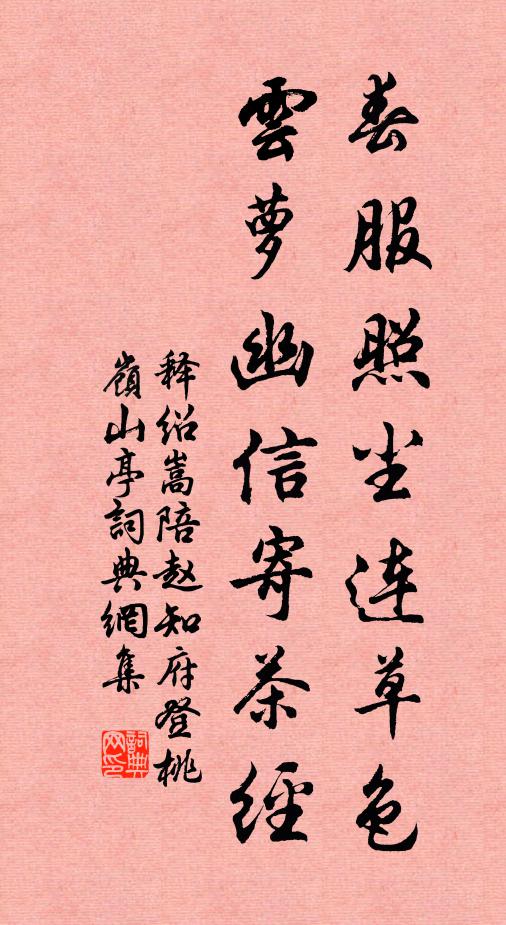 春服照尘连草色
雲萝幽信寄茶經
释绍嵩陪赵知府登桃
嶺山亭詞典網集
詞典
网印